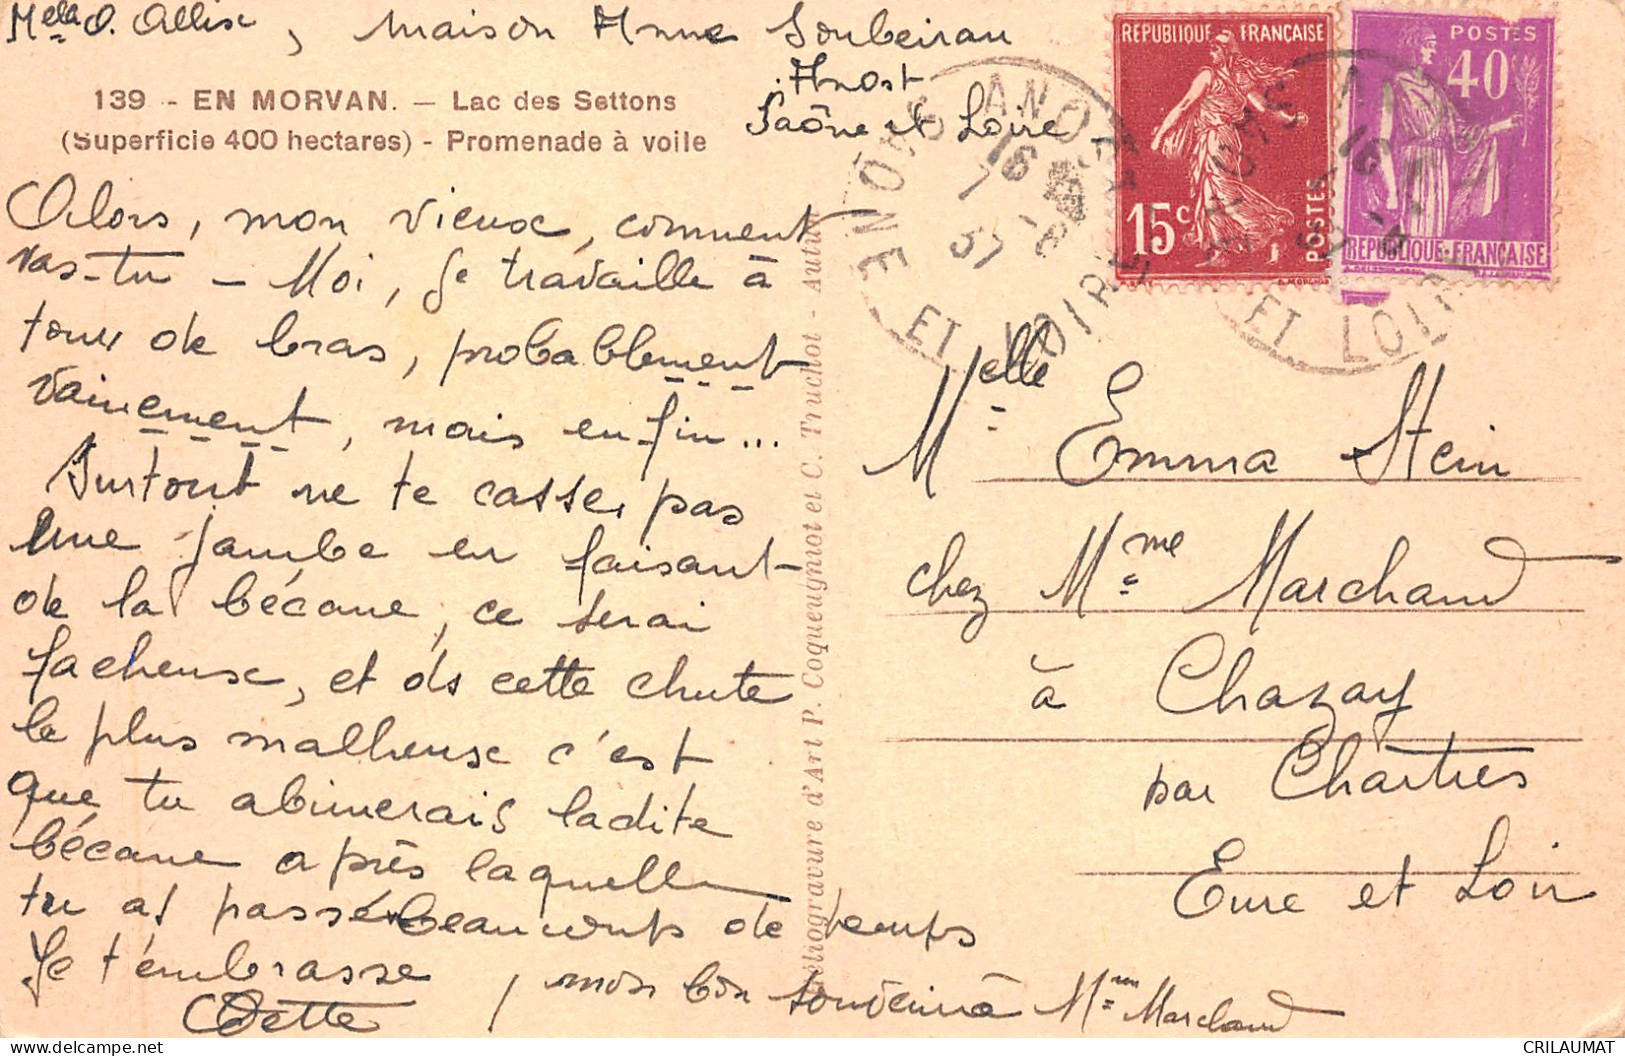 Melle O. Allix, maison Mme Soubeiran
Anost
Saône et Loire
139 - EN MORVAN. — Lac des Settons
(Superficie 400 hectares) - Promenade à voile
Alors, mon vieux, comment
vas-tu — Moi, je travaille à
tour de bras, probablement
vainement, mais enfin...
Surtout ne te casse pas
une jambe en faisant
de la bécane, ce serai
facheux, et ds cette chute
le plus malheux c'est
que tu abimerais ladite
bécane après laquelle
tu as passé beaucoup de temps
Je t'embrasse, mon bon souvenir à Mme Marchand
Odette
Héliogravure d'Art P. Coqueugniot et C. Truchot - Autun
REPUBLIQUE FRANÇAISE
15c
POSTES
POSTES
40
REPUBLIQUE FRANÇAISE
ANOST
SAONE ET LOIRE
16
7 -8
37
Melle Emma Stein
chez Mme Marchand
à Chazay
par Chartres
Eure et Loir
CRILAUMAT